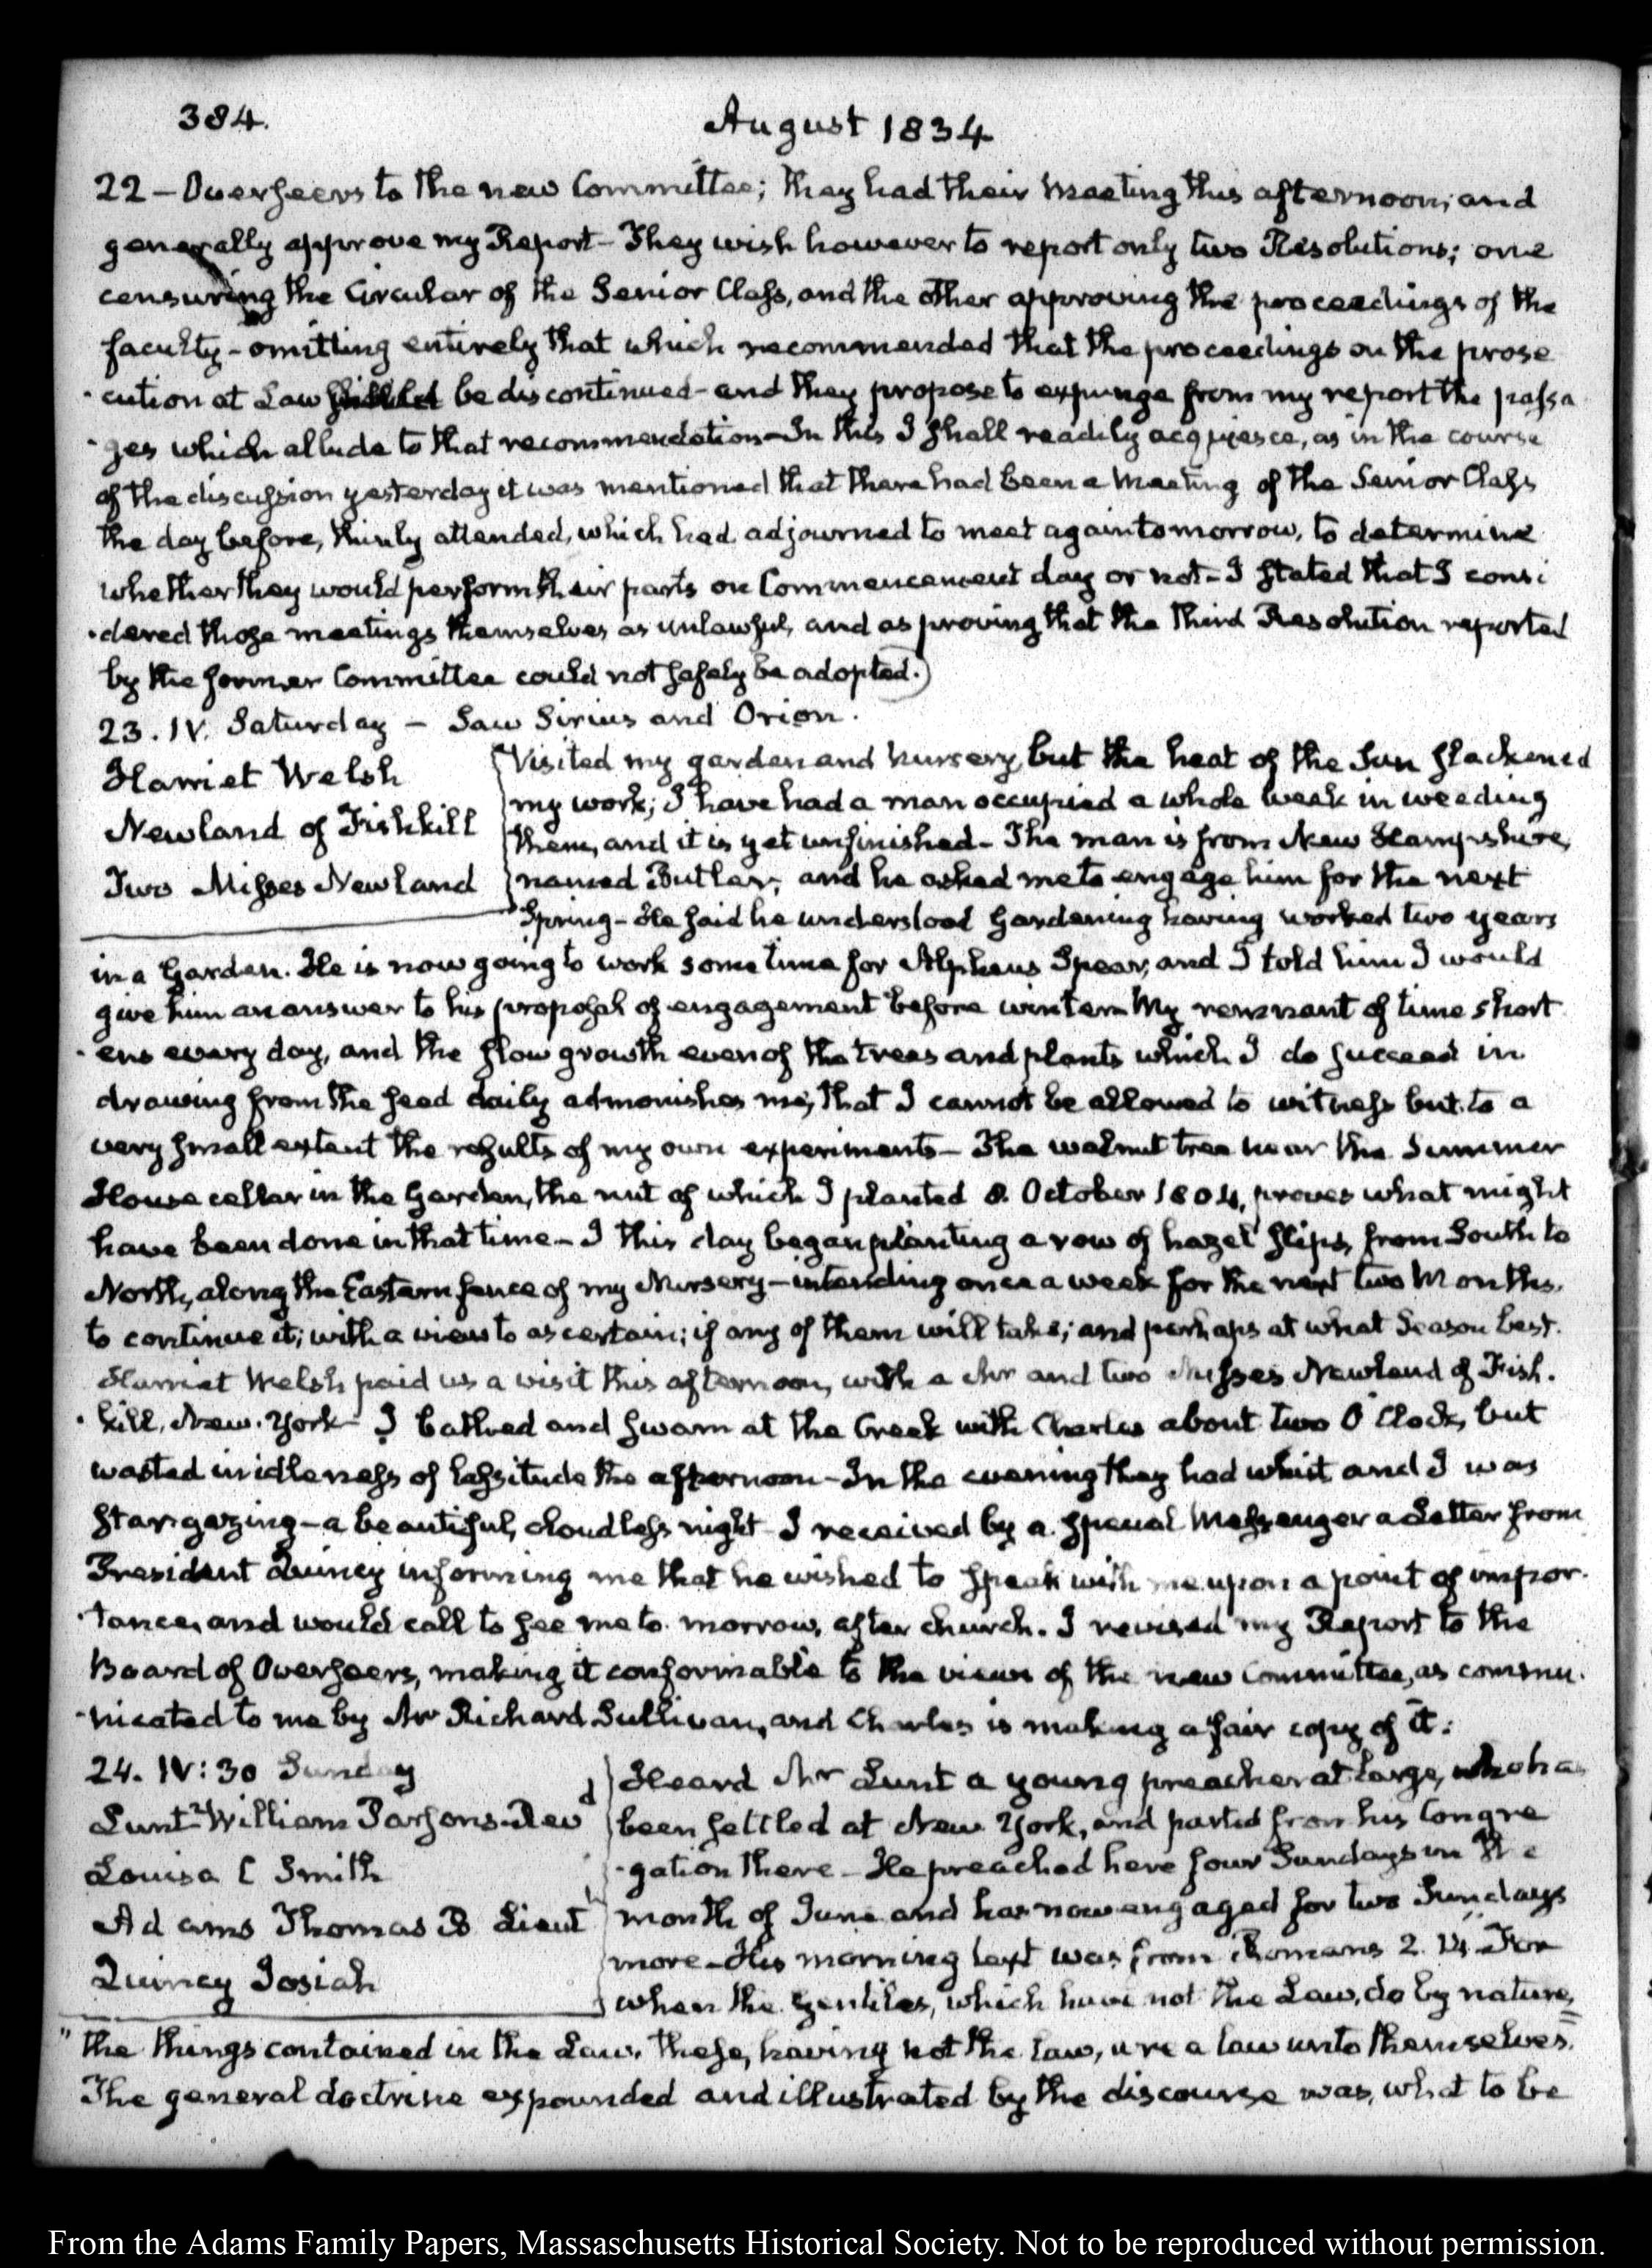 384.
August 1834
22 — Overseers to the new Committee; they had their meeting this afternoon; and
generally approve my Report - They wish however to report only two Resolutions; one
censuring the Circular of the Senior Class, and the other approving the proceedings of the
faculty - omitting entirely that which recommended that the proceedings on the prose
cution at Law be discontinued - and they propose to expunge from my report the passa
ges which allude to that recommendation - In this I shall readily acquiesce, as in the course
of the discussion yesterday it was mentioned that there had been a meeting of the Senior Class
the day before, thinly attended, which had adjourned to meet again tomorrow, to determine
whether they would perform their parts on Commencement day or not - I stated that I consi
dered those meetings themselves as unlawful, and as proving that the third Resolution reported
by the former Committee could not safely be adopted.)
23. IV. Saturday - Saw Sirius and Orion.
Harriet Welsh
Newland of Fishkill
Two Misses Newland
Visited my garden and nursery, but the heat of the Sun slackened
my work; I have had a man occupied a whole week in weeding
them, and it is yet unfinished - The man is from New Hampshire,
named Butler, and he asked me to engage him for the next
Spring - He said he understood Gardening having worked two years
in a Garden. He is now going to work some time for Alpheus Spear, and I told him I would
give him an answer to his proposal of engagement before winter - My remnant of time short
ens every day, and the slow growth even of the trees and plants which I do succeed in
drawing from the seed daily admonishes me, that I cannot be allowed to witness but to a
very small extent the results of my own experiments - The walnut tree near the Summer
House cellar in the Garden, the nut of which I planted 8. October 1804, proves what might
have been done in that time - I this day began planting a row of hazel slips, from South to
North, along the Eastern fence of my Nursery - intending once a week for the next two Months.
to continue it; with a view to ascertain; if any of them will take; and perhaps at what Season best.
Harriet Welsh paid us a visit this afternoon, with a Mr and two Misses Newland of Fish.
kill, New-York - I bathed and swam at the Creek with Charles about two O'Clock, but
wasted in idleness of lassitude the afternoon - In the evening they had whist and I was
Star-gazing - a beautiful, cloudless night - I received by a special Messenger a Letter from
President Quincy informing me that he wished to speak with me upon a point of impor-
tance, and would call to see me to-morrow, after church. I revised my Report to the
Board of Overseers, making it conformable to the views of the new Committee, as commu-
nicated to me by Mr Richard Sullivan, and Charles is making a fair copy of it.
24. IV:30 Sunday
Lunt William Parsons - Revd
Louisa C Smith
Adams Thomas B Lieut
Quincy Josiah
Heard Mr Lunt a young preacher at large, who has
been settled at New York, and parted from his Congre
gation there - He preached here four Sundays in the
month of June and has now engaged for two Sundays
more - His morning text was from Romans 2. 14. "For
when the gentiles, which have not the Law, do by nature,
"the things contained in the Law, these, having not the law, are a law unto themselves."
The general doctrine expounded and illustrated by the discourse was, what to be
From the Adams Family Papers, Massachusetts Historical Society. Not to be reproduced without permission.